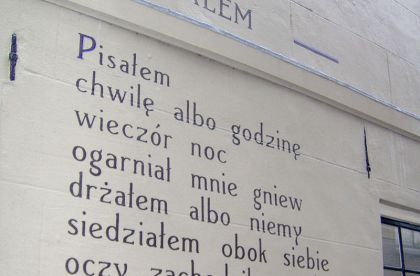 Pisałem
chwilę albo godzinę
wieczór noc
ogarniał mnie gniew
drżałem albo niemy
siedziałem obok siebie
oczy